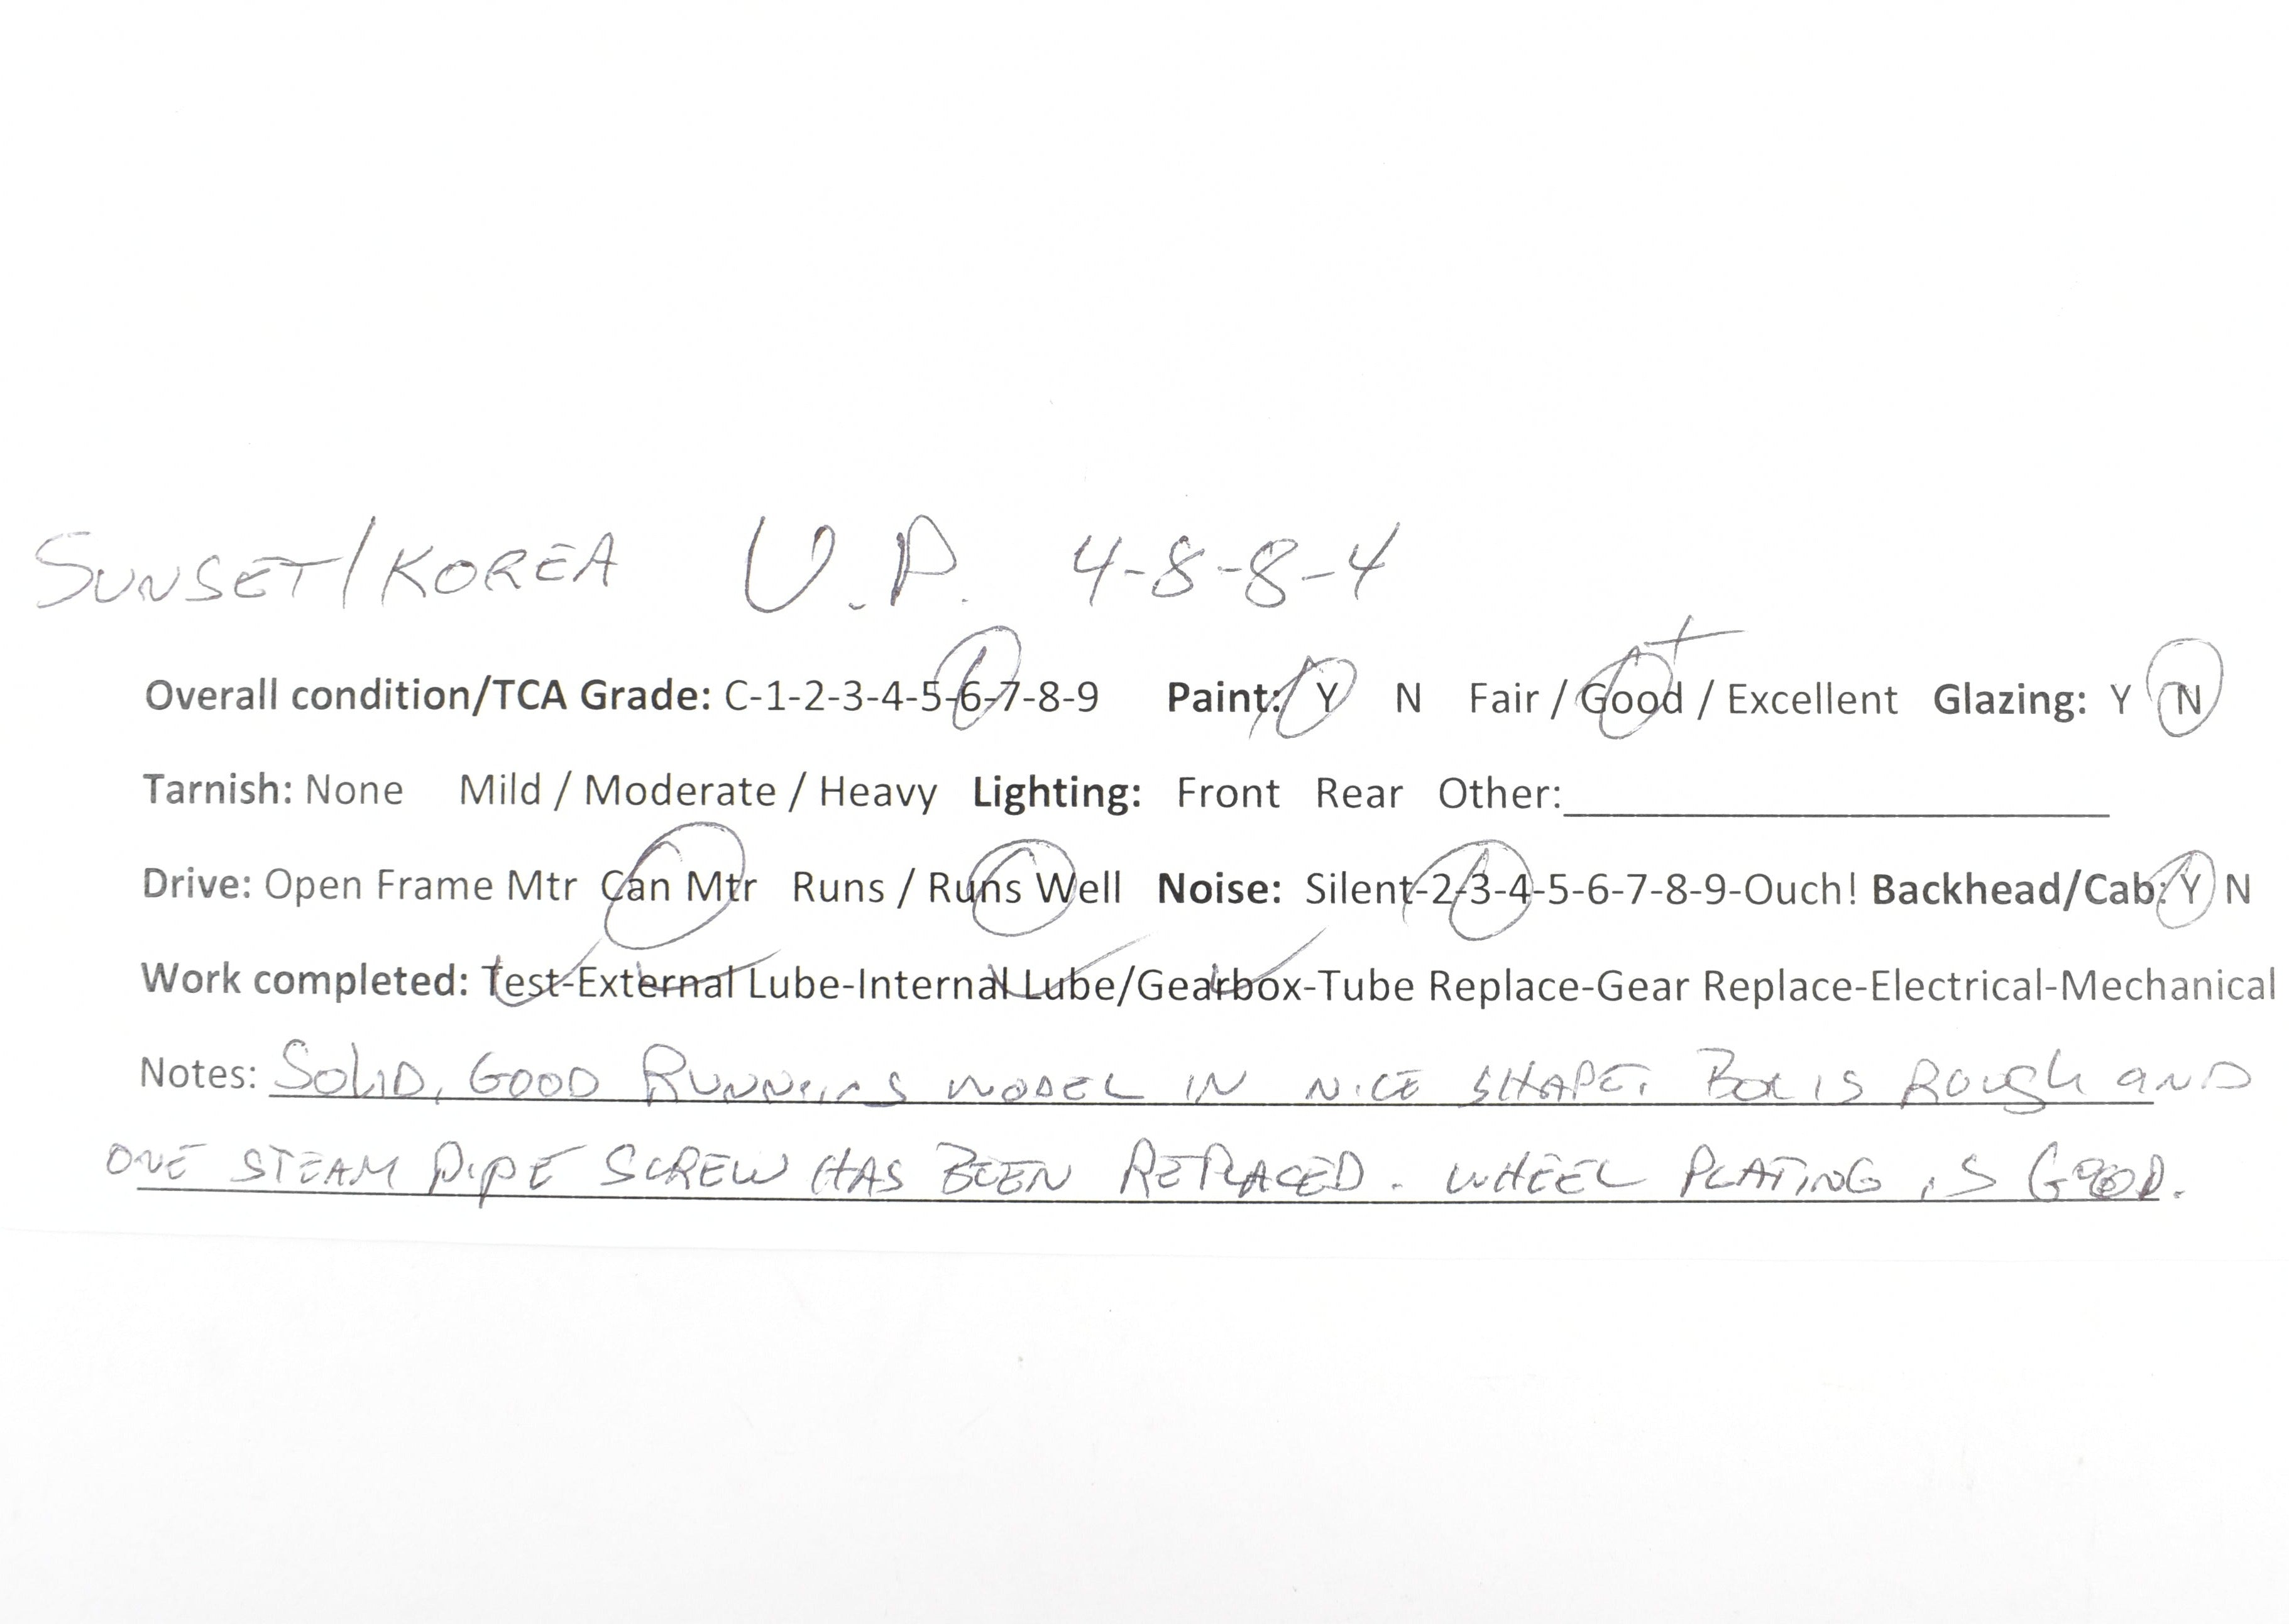 SUNSET/KOREA U.P. 4-8-8-4
Overall condition/TCA Grade: C-1-2-3-4-5-6-7-8-9 Paint: Y N Fair / Good + / Excellent Glazing: Y N
Tarnish: None Mild / Moderate / Heavy Lighting: Front Rear Other:
Drive: Open Frame Mtr Can Mtr Runs / Runs Well Noise: Silent-2-3-4-5-6-7-8-9-Ouch! Backhead/Cab: Y N
Work completed: Test-External Lube-Internal Lube/Gearbox-Tube Replace-Gear Replace-Electrical-Mechanical
Notes: SOLID, GOOD RUNNING MODEL IN NICE SHAPE. BOX IS ROUGH AND
ONE STEAM PIPE SCREW HAS BEEN REPLACED. WHEEL PLATING IS GOOD.